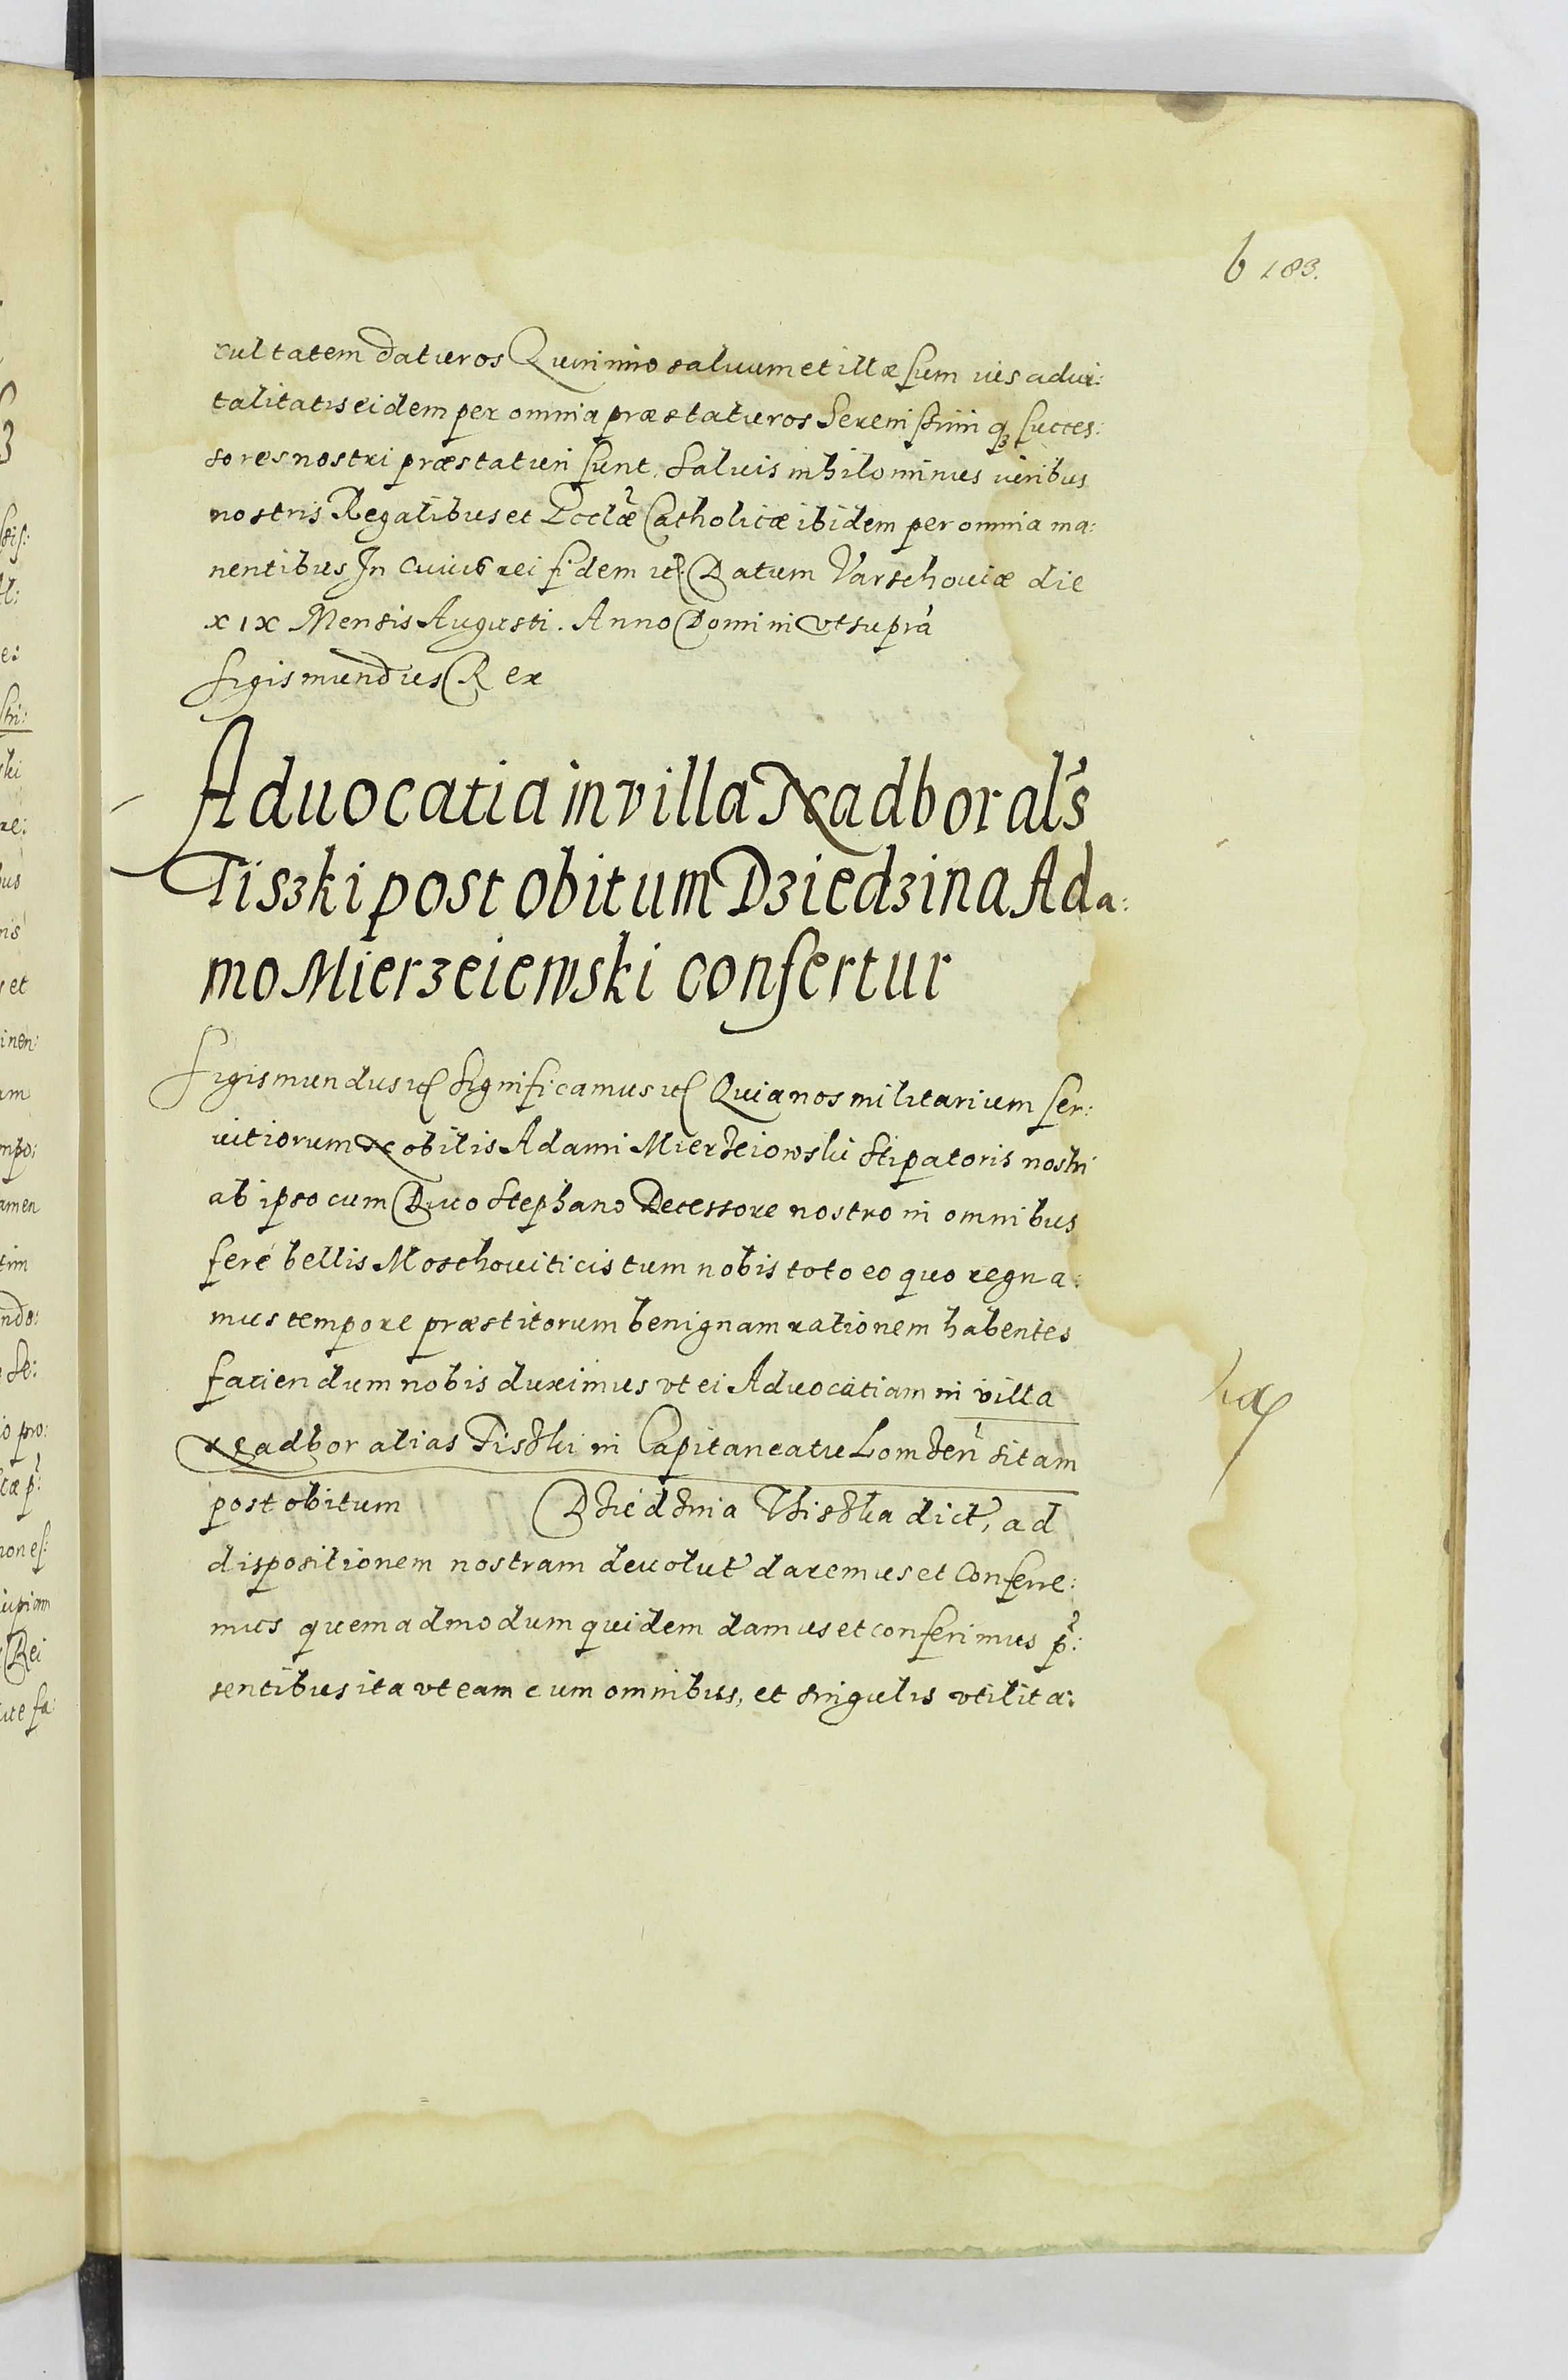 b 183.
cultatem daturos Quinimo saluum et illæsum ius adui:
talitatis eidem per omnia præstaturos Serenissimiq3 succes:
sores nostri præstaturi sunt. Saluis nihilominus iuribus
nostris Regalibus et Ecclæ Catholicæ ibidem per omnia ma:
nentibus In cuius rei fidem etc. Datum Varschouiæ die
XIX Mensis Augusti. Anno Domini vt suprà
Sigismundus Rex
Aduocatia in villa Nadbor als
Tiszki post obitum Dziedzina Ada:
mo Mierzeiewski confertur
Sigismundus etc Significamus etc Quia nos militarium ser:
uitiorum Nobilis Adami Mierzeiowski Stipatoris nostri
ab ipso cum Diuo Stephano Decessore nostro in omnibus
ferè bellis Moschouiticis tum nobis toto eo quo regna:
mus tempore præstitorum benignam rationem habentes
faciendum nobis duximus vt ei Aduocatiam in villa
Nadbor alias Tiszki in Capitaneatu Lomzen sitam
post obitum Dziedzinia Thiszka dict, ad
dispositionem nostram deuolut daremus et Conferre:
mus quemadmodum quidem damus et conferimus p:
sentibus ita vt eam cum omnibus, et singulis vtilita: